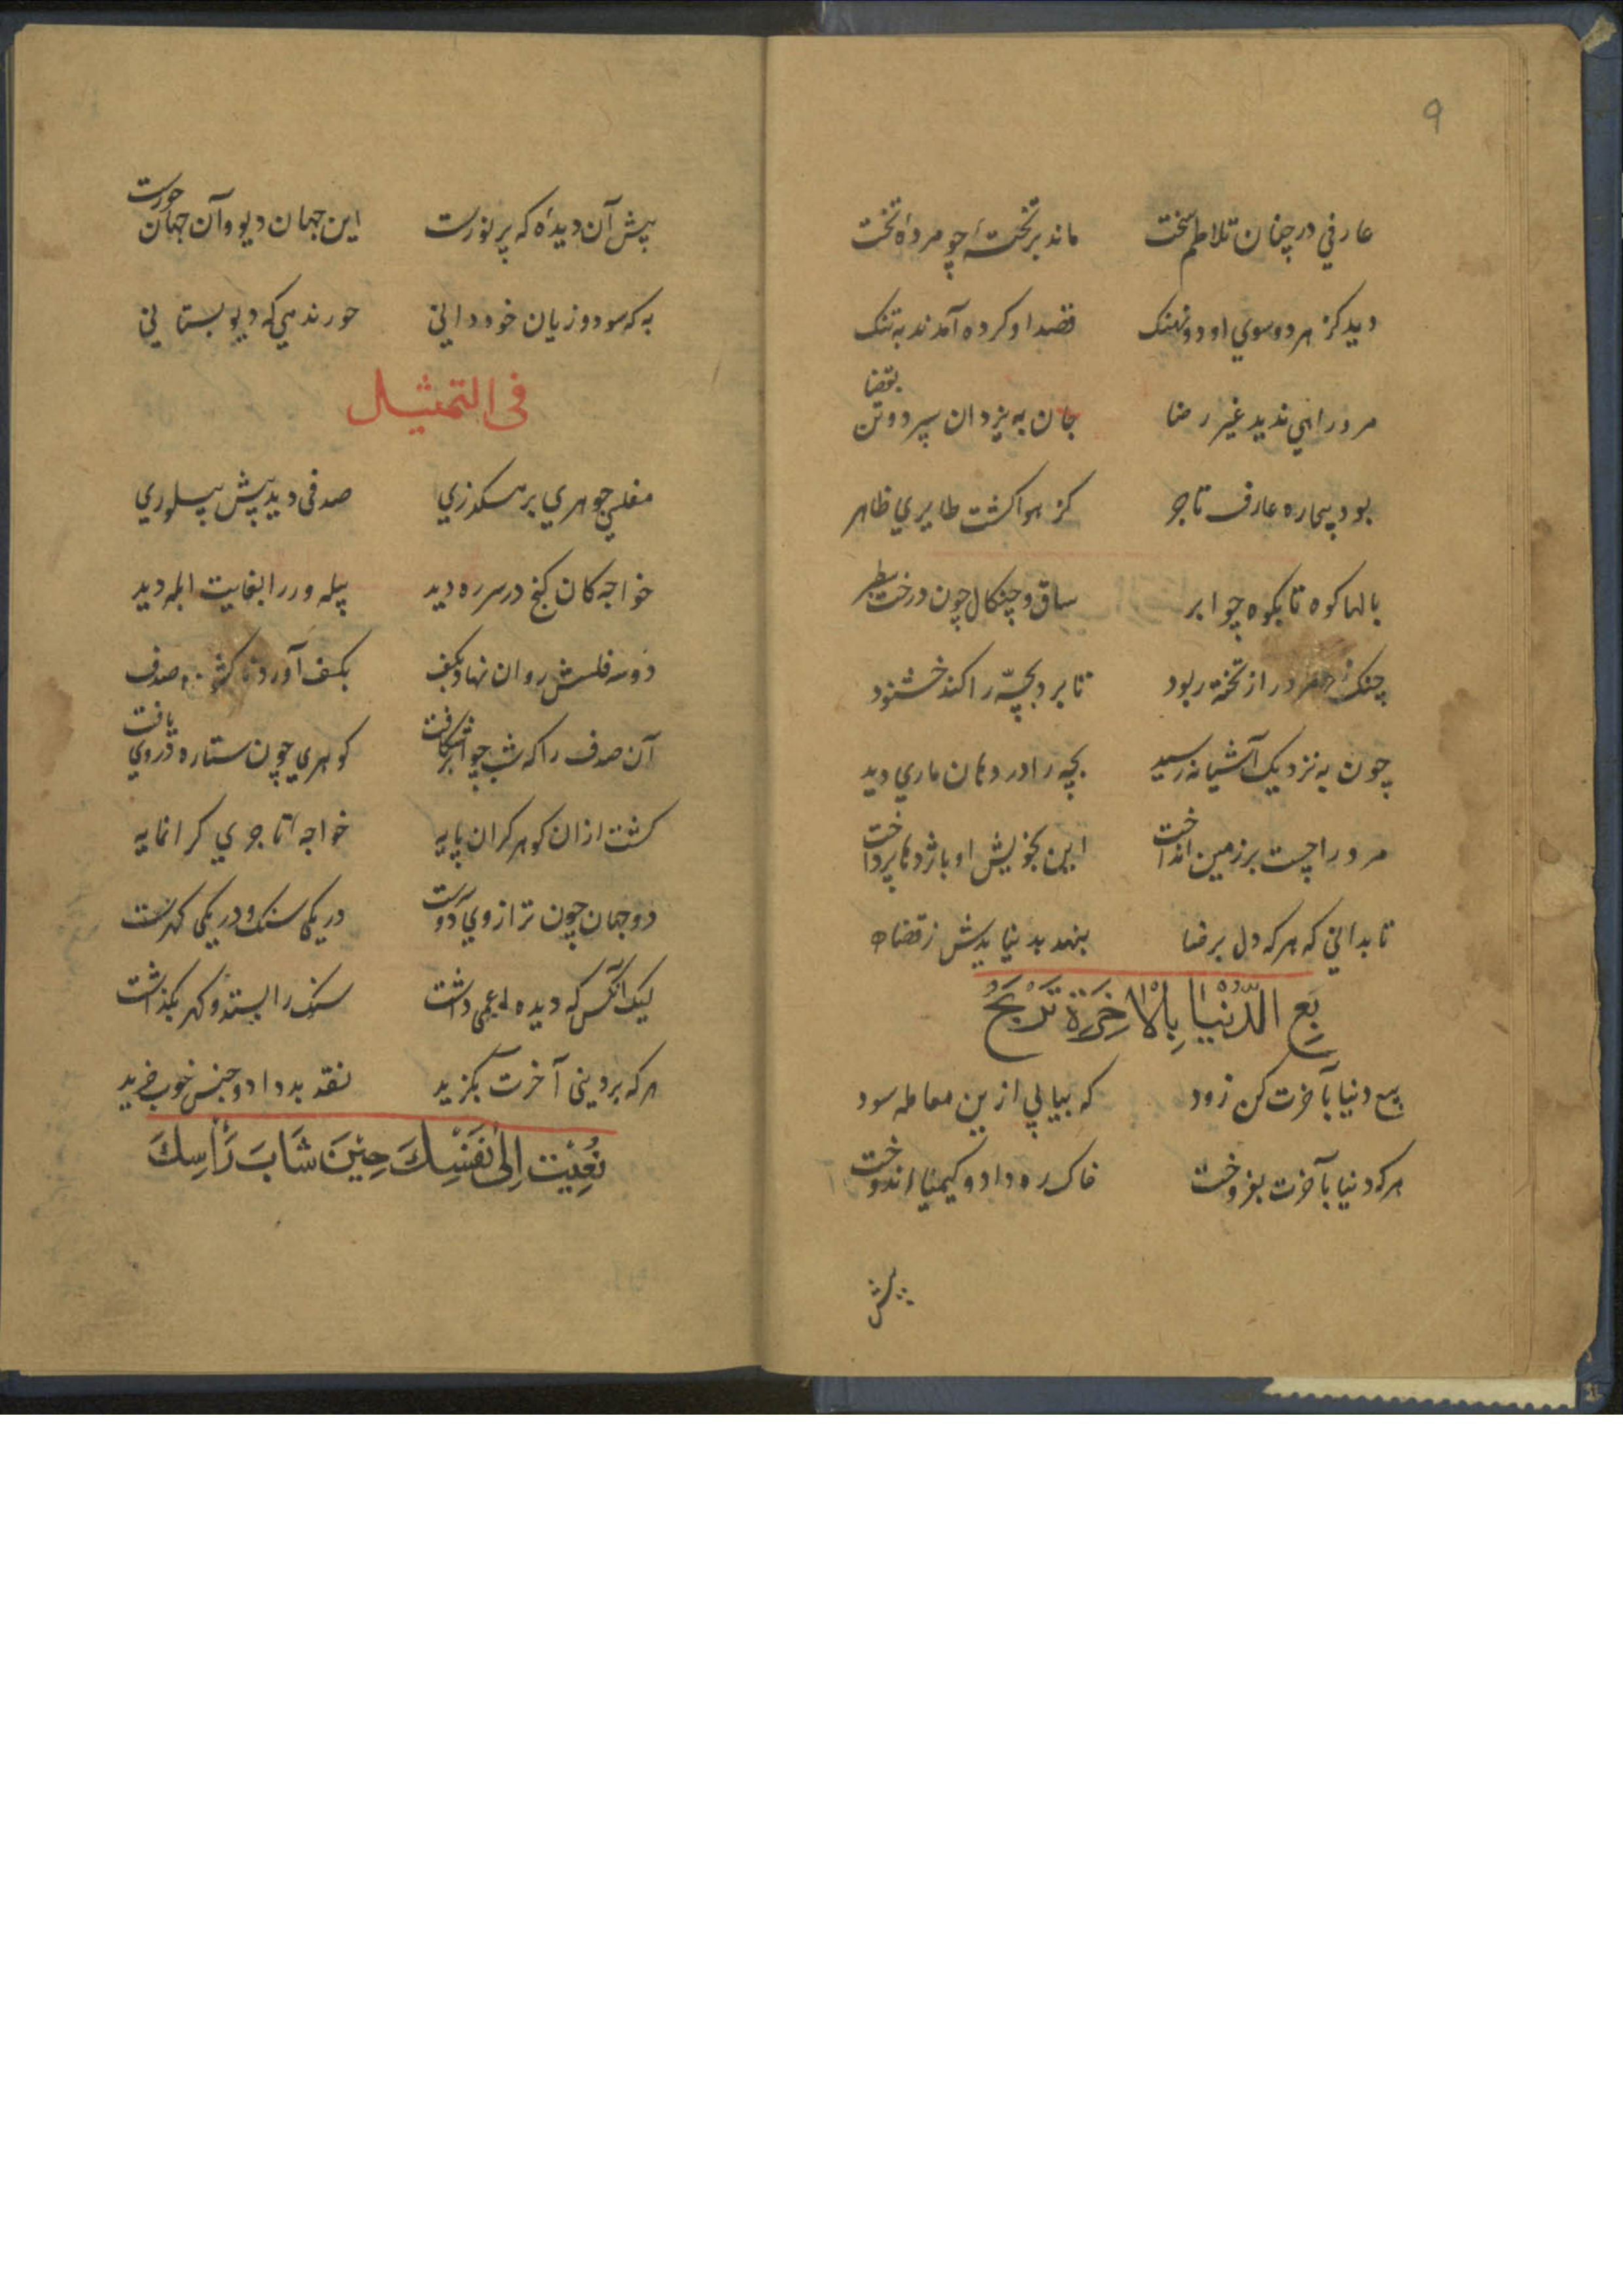 ۹
عارفي در چنان تلاطم سخت ماند بر تختهٔ چو مردهٔ تخت
ديد كز هر دو سوي او دو نهنك قصد او كرده آمدند به تنك
مرد راهي نديد غير رضا جان به يزدان سپرد و تن بقضا
بود بيچاره عارف تاجر كز هوا كشت طايري ظاهر
بالها كوه تا بكوه چو ابر ساق و چنكال چون درخت سطبر
چنك زد مرد را ز تخته ربود تا برد بچّه را كند خشنود
چون به نزديك آشيانه رسيد بچه را در دهان ماري ديد
مرد را چست بر زمين انداخت اين بخويش او باژدها پرداخت
تا بداني كه هر كه دل برضا بنهد بد نيايدش ز قضا
بِعِ الدُّنْيَا بِالْاخِرَةِ تَرْبَحْ
بيع دنيا بآخرت كن زود كه بيابي ازين معامله سود
هر كه دنيا بآخرت بفروخت خاك ره داد و كيميا اندوخت
پيش
پيش آن ديدهٔ كه پر نورست اين جهان ديو و آن جهان حورست
به كه سود و زيان خود داني حور ندهي كه ديو بستاني
فی التمثیل
مفلسي جوهري برهكذري صدفی ديد پيش پيلوري
خواجه كان كنج در سر ره ديد پيله ور را بغايت ابله ديد
دو سه فلسش روان نهاد بكف بكف آورد صدف
آن صدف را كه شب چو اختر يافت كوهري چون ستاره در وي يافت
كشت از ان كوهر كران پايه خواجهٔ تاجري كرانمايه
دو جهان چون ترازوي دوسرست در يكی سنك و در يكی كهرست
ليك آنكس كه ديده اعمی داشت سنك را بستد و كهر بكذاشت
هر كه بر دينی آخرت بكزيد نقد بد داد و جنس خوب خريد
نُعِيْتَ اِلٰى نَفْسِكَ حِيْنَ شَابَ رَأْسِكَ